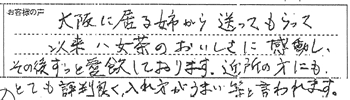 お客様の声
大阪に居る姉から送ってもらって
以来八女茶のおいしさに感動し、
その後ずっと愛飲しております。近所の方にも、
とても評判良く、入れ方がうまい等と言われます。